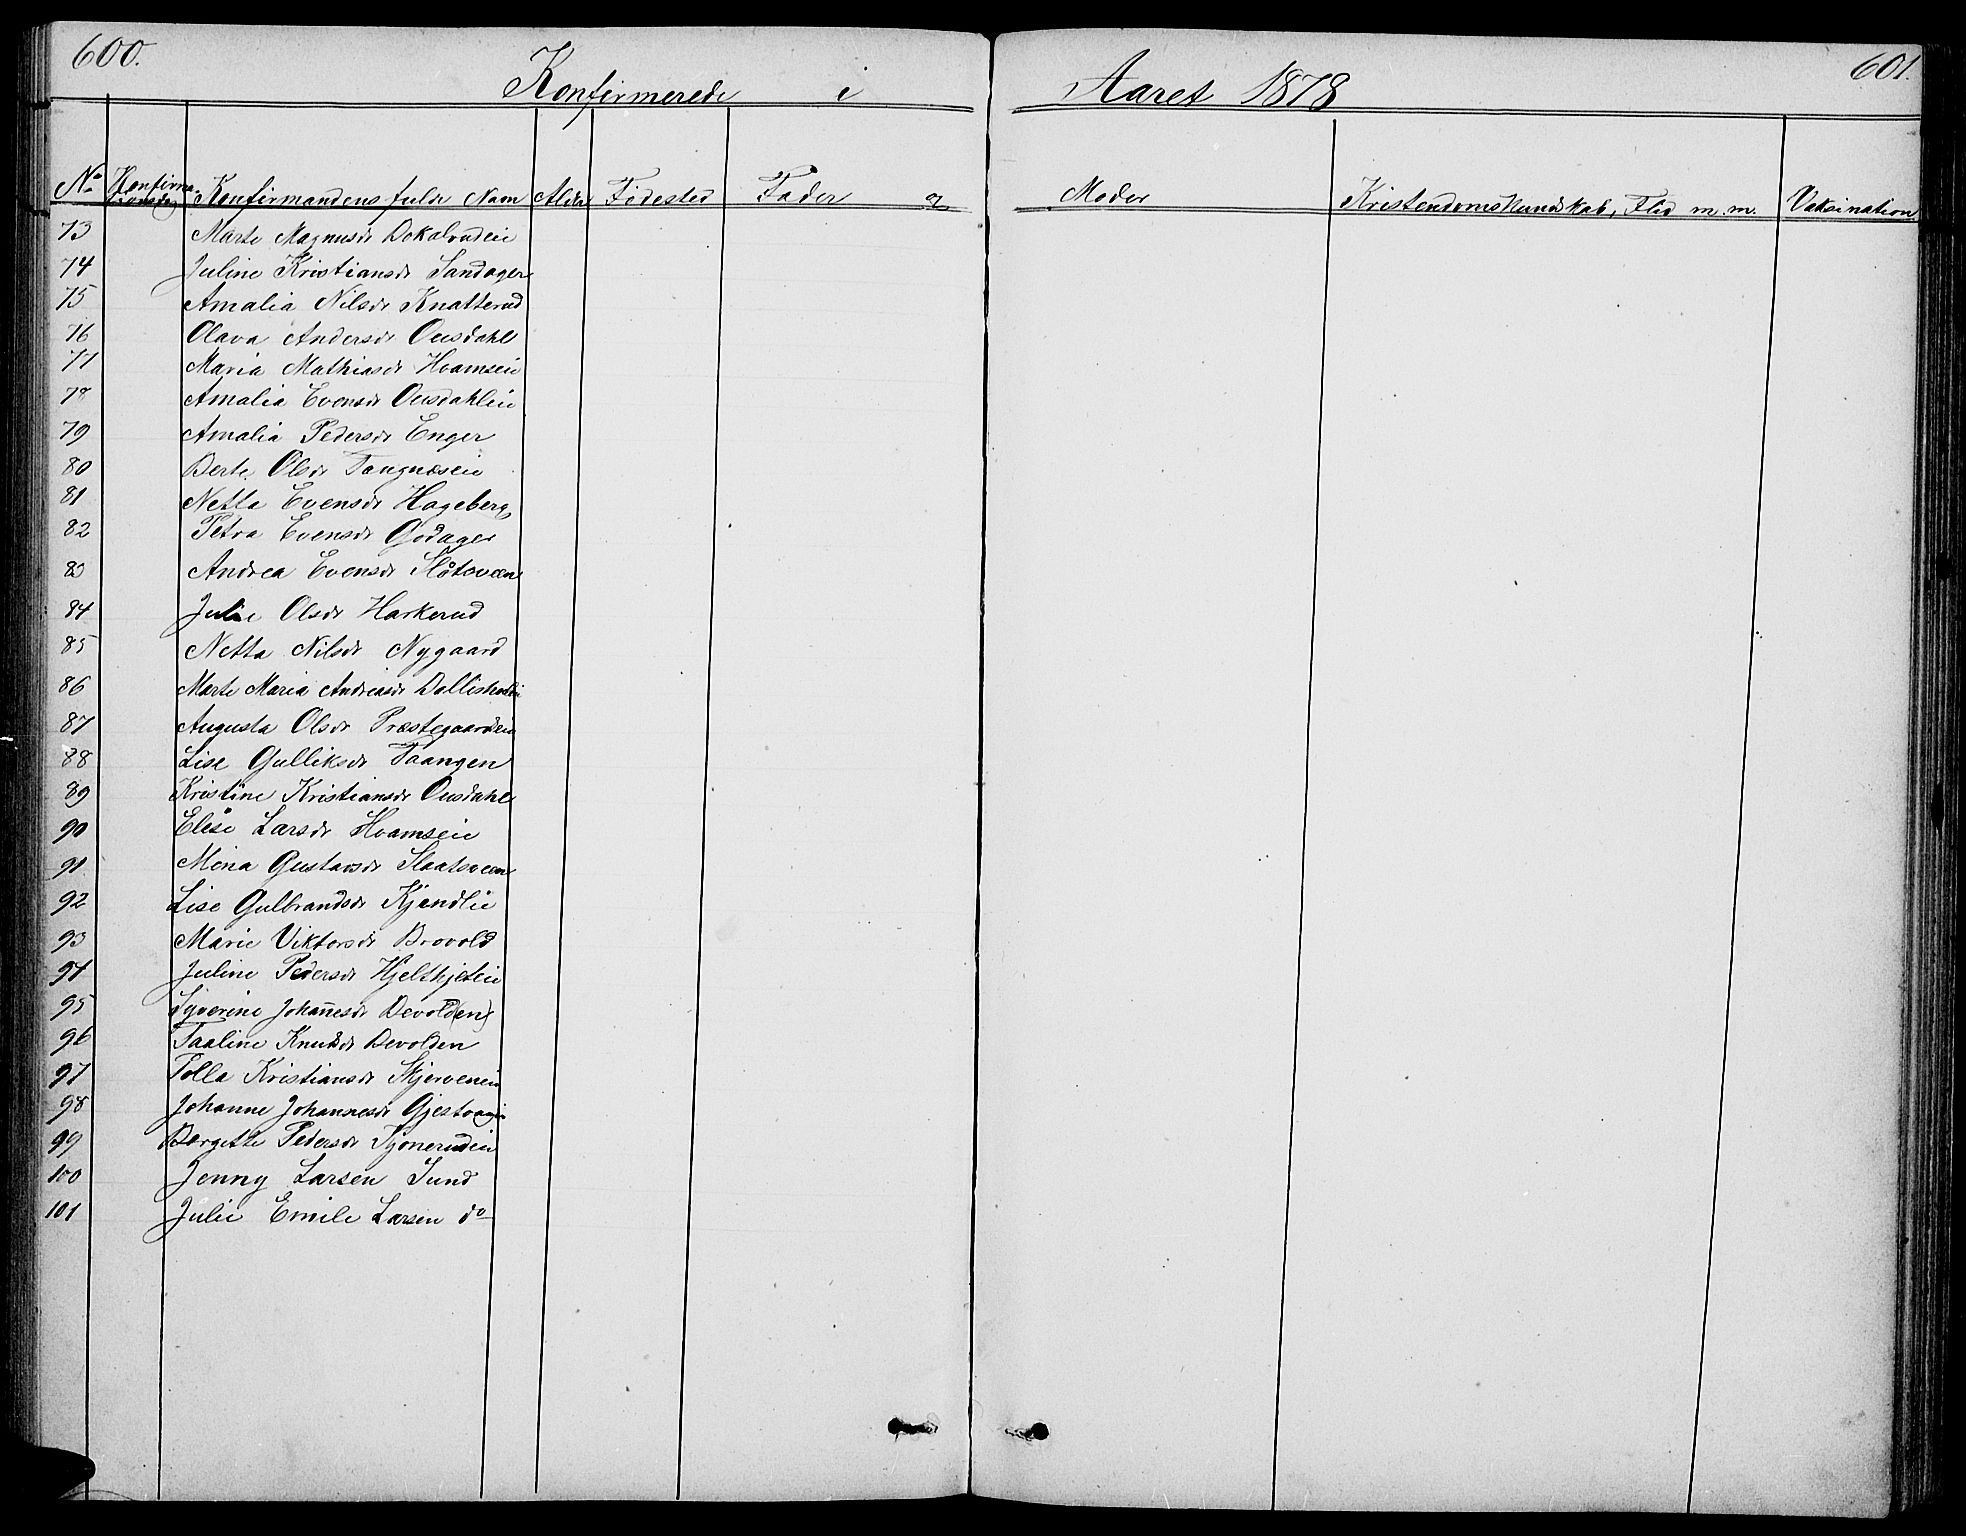 600.
601.
Konfirmerede i Aaret 1878
No Konfirma-tionsdag Konfirmandens fulde Navn Alder Fødested Fader og Moder Kristendomskundskab, Flid m. m. Vaksination
73 Marte Magnusdr Dokalrudeie
74 Juline Kristiansdr Sandager
75 Amalia Nilsdr Knatterud
76 Olava Andersdr Ousdahl
77 Maria Mathiasdr Hvamseie
78 Amalia Evensdr Ousdahleie
79 Amalia Pedersdr Enger
80 Berte Olsdr Tangnæseie
81 Netta Evensdr Hageberg
82 Petra Evensdr Godager
83 Andrea Evensdr Slåtsveen
84 Julie Olsdr Harkerud
85 Netta Nilsdr Nygaard
86 Marte Maria Andreasdr
87 Augusta Olsdr Præstegaardseie
88 Lise Gulliksdr Taangen
89 Kristine Kristiansdr Ousdahl
90 Elise Larsdr Hvamseie
91 Mina Gustavsdr Slaatsveen
92 Lise Gulbrandsdr Kjendlie
93 Marie Viktorsdr Brovold
94 Juline Pedersdr Hjeltkjeteie
95 Syverine Johan̄esdr Bevold(en)
96 Taaline Knudsdr Bevolden
97 Polla Kristiansdr Skjerveneie
98 Johanne Johannesdr
99 Bergette Pedersdr Tjonerudeie
100 Jenny Larsen Sund
101 Julie Emile Larsen do